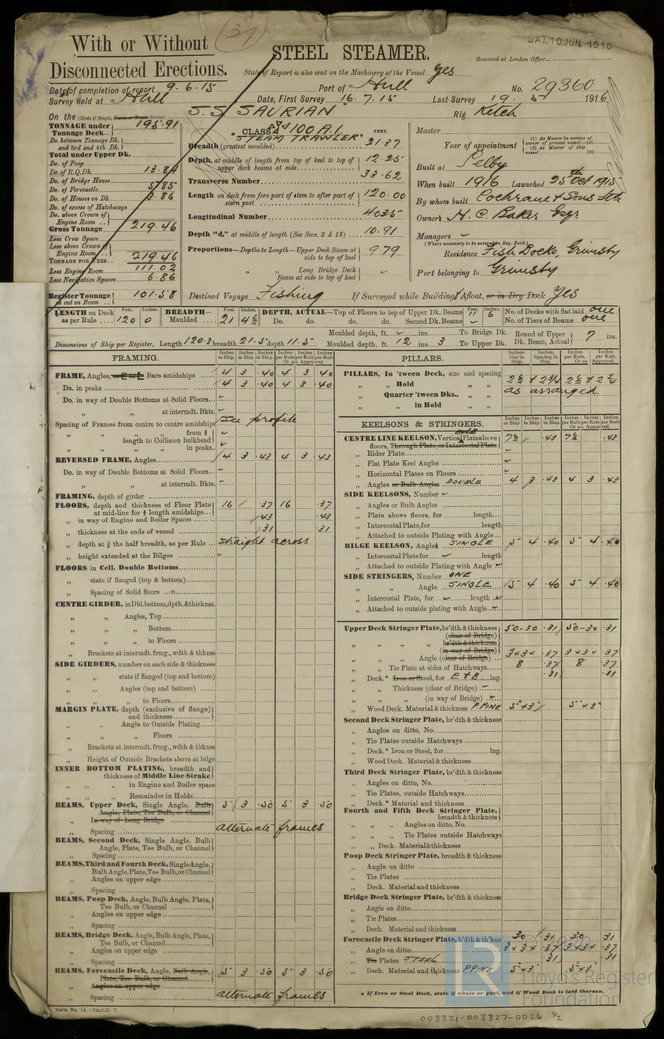 With or Without
Disconnected Erections.
(39)
STEEL STEAMER.
SAT. 10 JUN. 1916
Received at London Office
State if Report is also sent on the Machinery of the Vessel Yes
Date of completion of report 9.6.15
Port of Hull
No. 29360
Survey held at Hull
Date, First Survey 16.7.15
Last Survey 19. 5 1916
On the
S.S. SAURIAN
Rig Ketch
TONNAGE under Tonnage Deck 195.91
Do. between Tonnage Dk. and 3rd and 4th Dk.
Total under Upper Dk.
Do. of Poop
Do. of R.Q.Dk. 13.84
Do. of Bridge House
Do. of Forecastle 5.85
Do. of Houses on Dk. 3.86
Do. of excess of Hatchways
Do. above Crown of Engine Room
Gross Tonnage 219.46
Less Crew Space
Less above Crown of Engine Room
219.46
Less Engine Room 111.02
Less Navigation Spaces 6.86
Register Tonnage as cut on Beam 101.58
CLASS 100 A1.
"STEAM TRAWLER"
FEET.
Breadth (greatest moulded) 21.37
Depth, at middle of length from top of keel to top of upper deck beams at side 12.25
Transverse Number 33.62
Length on deck from fore part of stem to after part of stern post 120.00
Longitudinal Number 4035
Depth "d," at middle of length (See Secs. 2 & 13) 10.91
Proportions—Depths to Length—Upper Deck Beam at side to top of keel 9.79
" " Long Bridge Deck Beam at side to top of keel
Master
Year of appointment
(1) As Master in service of owner of present vessel
(2) As Master of this vessel
Built at Selby
When built 1916 Launched 25th Oct 1915
By whom built Cochrane & Sons Ltd
Owners H. C. Baker Esqr
Managers
(Where necessary to be entered in Reg. Book.)
Residence Fish Docks, Grimsby
Port belonging to Grimsby
Destined Voyage Fishing
If Surveyed while Building, Afloat, or in Dry Dock Yes
LENGTH on Deck as per Rule 120 0
BREADTH— Moulded 21 4½
DEPTH, ACTUAL—Top of Floors to top of Upper Dk. Beams 11 6
Do. do. do. Second Dk. Beams
No. of Decks with flat laid one
No. of Tiers of Beams one
Dimensions of Ship per Register, Length 120.3 breadth 21.5 depth 11.5
Moulded depth, ft. ins. To Bridge Dk.
Moulded depth, ft. 12 ins. 3 To Upper Dk.
Round of Upper Dk. Beams, Actual 7 ins.
FRAMING.
FRAME, Angles, Bars amidships 4 3 .40 4 3 .40
Do. in peaks 4 3 .40 4 3 .40
Do. in way of Double Bottoms at Solid Floors
" " at intermdt. Bkts.
Spacing of Frames from centre to centre amidships In profile
" " from ⅗ length to Collision bulkhead
" " in peaks
REVERSED FRAME, Angles 4 3 .43 4 3 .43
Do. in way of Double Bottoms at Solid Floors
" " at intermdt. Bkts.
FRAMING, depth of girder
FLOORS, depth and thickness of Floor Plate at mid-line for ½ length amidships 16 .37 16 .37
" in way of Engine and Boiler Spaces .43 .43
" thickness at the ends of vessel .31 .31
" depth at ¾ the half breadth, as per Rule straight across
" height extended at the Bilges
FLOORS in Cell. Double Bottoms
" state if flanged (top & bottom)
" Spacing of Solid floors
CENTRE GIRDER, in Dbl. bottom, dpth. & thicknss.
" " Angles, Top
" " " Bottom
" " " to Floors
" Brackets at intermdt. frmg., wdth & thkns
SIDE GIRDERS, number on each side & thickness
" " state if flanged (top and bottom)
" " Angles (top and bottom)
" " " to Floors
MARGIN PLATE, depth (exclusive of flange) and thickness
" " Angle to Outside Plating
" " " Floors
" Brackets at intermdt. frmg., wdth & thkns
" Height of Outside Brackets above at bilge
INNER BOTTOM PLATING, breadth and thickness of Middle Line Strake
" " in Engine and Boiler space
" " Remainder in Holds
BEAMS, Upper Deck, Single Angle, Bulb Angle, Plate, Tee Bulb, or Channel 5 3 .50 5 3 .50
" In way of Long Bridge
" Spacing alternate frames
BEAMS, Second Deck, Single Angle, Bulb Angle, Plate, Tee Bulb, or Channel
" Spacing
BEAMS, Third and Fourth Deck, Single Angle, Bulb Angle, Plate, Tee Bulb, or Channel
" Angles on upper edge
" Spacing
BEAMS, Poop Deck, Angle, Bulb Angle, Plate, Tee Bulb, or Channel
" Angles on upper edge
" Spacing
BEAMS, Bridge Deck, Angle, Bulb Angle, Plate, Tee Bulb, or Channel
" Angles on upper edge
" Spacing
BEAMS, Forecastle Deck, Angle, Bulb Angle, Plate, Tee Bulb, or Channel 5 3 .50 5 3 .50
" Angles on upper edge
" Spacing alternate frames
PILLARS.
PILLARS, In 'tween Deck, size and spacing
" Hold " "
" Quarter 'tween Dks., " " as arranged
" in Hold " "
KEELSONS & STRINGERS.
CENTRE LINE KEELSON, Vertical Plate above floors, Through Plate, or Intercostal Plate 7½ .43 7½ .43
" Rider Plate
" Flat Plate Keel Angles
" Horizontal Plates on Floors
" Angles or Bulb Angles DOUBLE 4 3 .43 4 3 .43
SIDE KEELSONS, Number
" Angles or Bulb Angles
" Plate above floors, for length
" Intercostal Plate, for length
" Attached to outside Plating with Angle
BILGE KEELSON, Angles SINGLE 5 4 .40 5 4 .40
" Intercostal Plate for length
" Attached to outside Plating with Angle
SIDE STRINGERS, Number ONE
" Angle SINGLE 5 4 .40 5 4 .40
" Intercostal Plate, for length
" Attached to outside plating with Angle
Upper Deck Stringer Plate, br'dth & thickness (clear of Bridge) 50-30 .31 50-30 .31
" " " br'dth & thickness (in way of Bridge)
" Angle (clear of Bridge) 3×3× .37 3×3× .37
" Tie Plate at sides of Hatchways 8 .37 8 .37
" Deck.* Iron or Steel, for E & B. lng. .31 .31
" Thickness (clear of Bridge)
" " (in way of Bridge)
" Wood Deck. Material & thickness P PINE 5×3 5×3
Second Deck Stringer Plate, br'dth & thickness
" Angles on ditto, No.
" Tie Plates outside Hatchways
" Deck.* Iron or Steel, for lng.
" Wood Deck. Material & thickness
Third Deck Stringer Plate, br'dth & thickness
" Angles on ditto, No.
" Tie Plates, outside Hatchways
" Deck.* Material and thickness
Fourth and Fifth Deck Stringer Plate, breadth & thickness
" " Angles on ditto, No.
" " Tie Plates outside Hatchways
" " Deck. Material & thickness
Poop Deck Stringer Plate, breadth & thickness
" Angle on ditto
" Tie Plates
" Deck. Material and thickness
Bridge Deck Stringer Plate, br'dth & thickness
" Angle on ditto
" Tie Plates
" Deck. Material and thickness
Forecastle Deck Stringer Plate, br'dth & th'kns 30 .31 30 .31
" Angle on ditto .37 .37
" Tie Plates STEEL .31 .31
" Deck. Material and thickness P PINE 5×3 5×3
* If Iron or Steel Deck, state if whole or part, and if Wood Deck is laid thereon.
Form No. 1A.
LR
Lloyd's Register
Foundation
003321-003327-0026 1/2